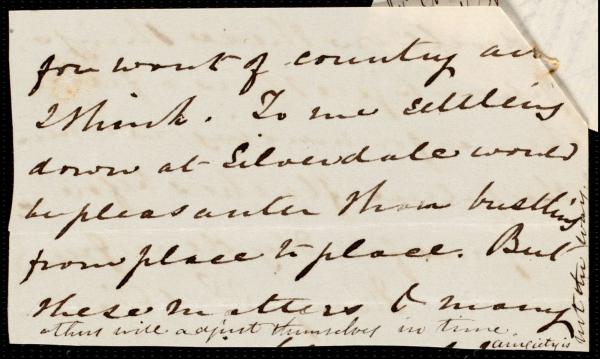 for want of country air
I think. To me settling
down at Silverdale would
be pleasanter than bustling
from place to place. But
these matters & many
others will adjust themselves in time.
anxiety is
not the way.